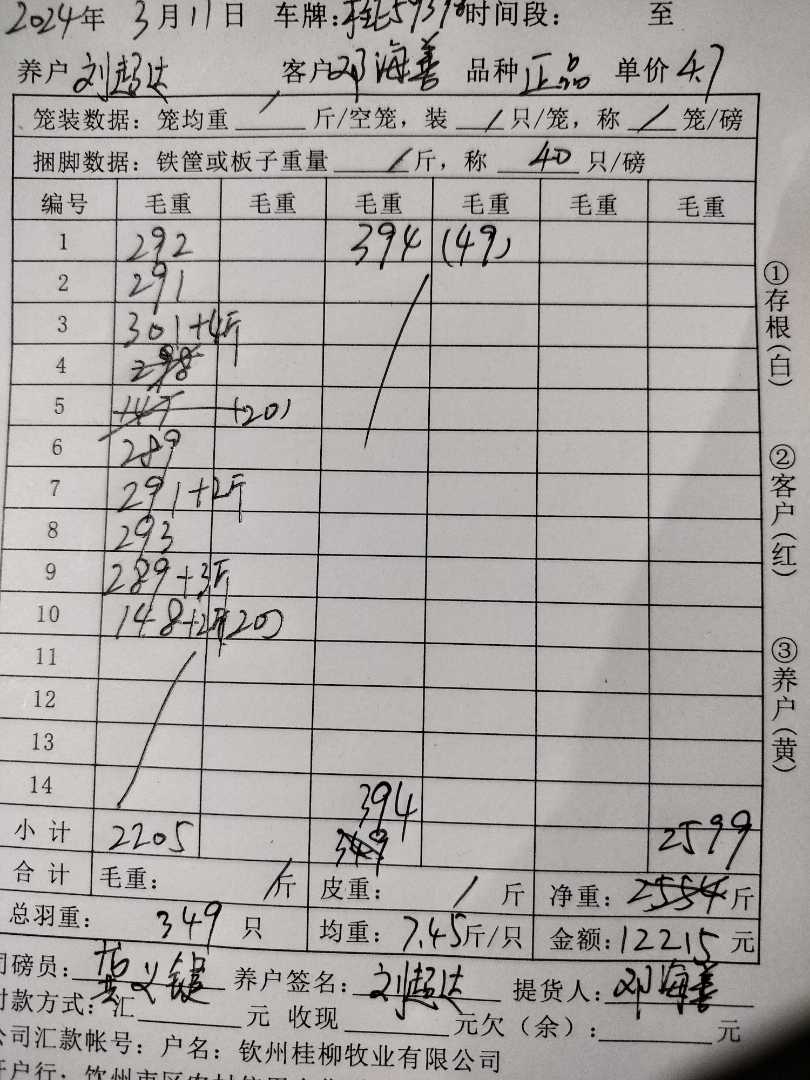 2024年 3月11日 车牌: 时间段: 至
养户 刘超达 客户 邓海善 品种 正品 单价 4.7
笼装数据: 笼均重 / 斤/空笼, 装 / 只/笼, 称 / 笼/磅
捆脚数据: 铁筐或板子重量 / 斤, 称 40 只/磅
编号 毛重 毛重 毛重 毛重 毛重 毛重
1 292 394 (49)
2 291
3 301+4斤
4 298
5 147 (20)
6 289
7 291+2斤
8 293
9 289+3斤
10 148+2斤 20)
11
12
13
14 394
小计 2205 349 2599
合计 毛重: / 斤 皮重: / 斤 净重: 2554 斤
总羽重: 349 只 均重: 7.45 斤/只 金额: 12215 元
司磅员: 养户签名: 刘超达 提货人: 邓海善
付款方式: 汇 元 收现 元欠(余): 元
公司汇款帐号: 户名: 钦州桂柳牧业有限公司
开户行:
①存根(白)
②客户(红)
③养户(黄)